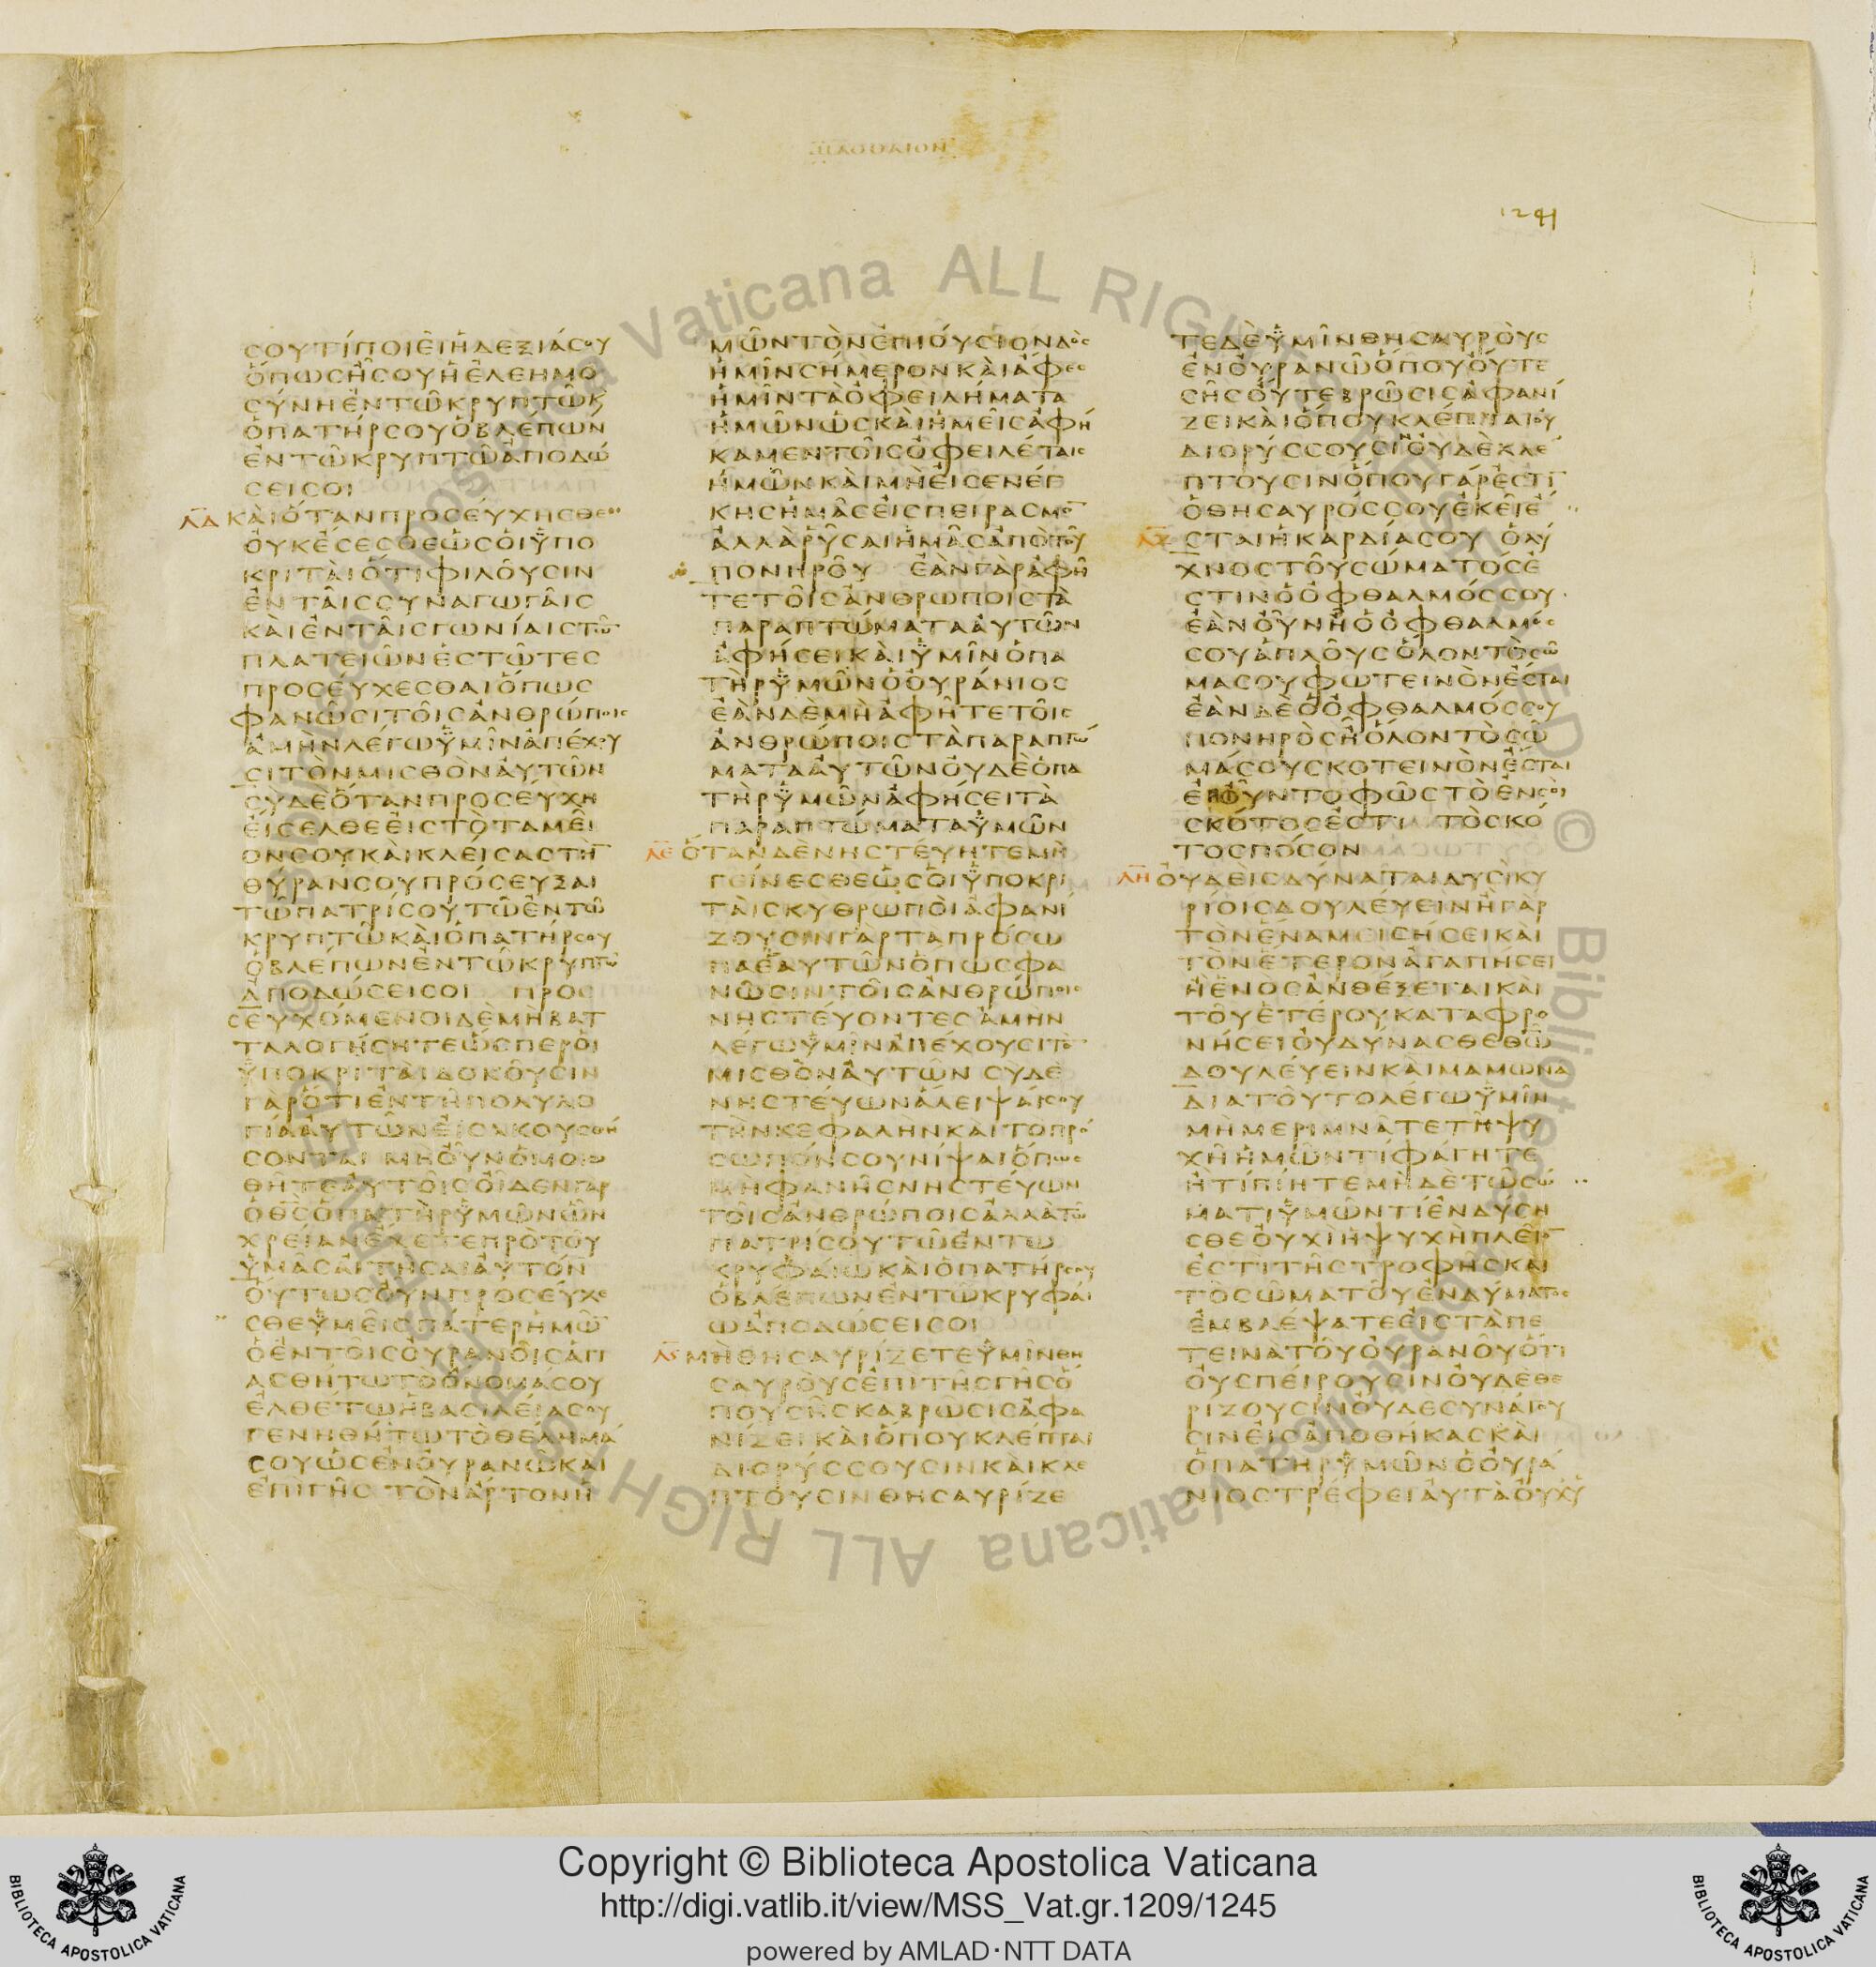 1241
ϹΟΥΤΙΠΟΙΕΙΗΔΕΞΙΑϹΟΥ
ΟΠΩϹΗϹΟΥΗΕΛΕΗΜΟ
ϹΥΝΗΕΝΤΩΚΡΥΠΤΩΚ
ΟΠΑΤΗΡϹΟΥΟΒΛΕΠΩΝ
ΕΝΤΩΚΡΥΠΤΩΑΠΟΔΩ
ϹΕΙϹΟΙ
ΛΔ ΚΑΙΟΤΑΝΠΡΟϹΕΥΧΗϹΘΕ
ΟΥΚΕϹΕϹΘΕΩϹΟΙΫΠΟ
ΚΡΙΤΑΙΟΤΙΦΙΛΟΥϹΙΝ
ΕΝΤΑΙϹϹΥΝΑΓΩΓΑΙϹ
ΚΑΙΕΝΤΑΙϹΓΩΝΙΑΙϹΤΩ̅
ΠΛΑΤΕΙΩΝΕϹΤΩΤΕϹ
ΠΡΟϹΕΥΧΕϹΘΑΙΟΠΩϹ
ΦΑΝΩϹΙΤΟΙϹΑΝΘΡΩΠΟΙϹ
ΑΜΗΝΛΕΓΩΫΜΙΝΑΠΕΧΟΥ
ϹΙΤΟΝΜΙϹΘΟΝΑΥΤΩΝ
ϹΥΔΕΟΤΑΝΠΡΟϹΕΥΧΗ
ΕΙϹΕΛΘΕΕΙϹΤΟΤΑΜΕΙ
ΟΝϹΟΥΚΑΙΚΛΕΙϹΑϹΤΗ̅
ΘΥΡΑΝϹΟΥΠΡΟϹΕΥΞΑΙ
ΤΩΠΑΤΡΙϹΟΥΤΩΕΝΤΩ
ΚΡΥΠΤΩΚΑΙΟΠΑΤΗΡϹΟΥ
ΟΒΛΕΠΩΝΕΝΤΩΚΡΥΠΤΩ
ΑΠΟΔΩϹΕΙϹΟΙ ΠΡΟϹ
ΕΥΧΟΜΕΝΟΙΔΕΜΗΒΑΤ
ΤΑΛΟΓΗϹΗΤΕΩϹΠΕΡΟΙ
ΫΠΟΚΡΙΤΑΙΔΟΚΟΥϹΙΝ
ΓΑΡΟΤΙΕΝΤΗΠΟΛΥΛΟ
ΓΙΑΑΥΤΩΝΕΙϹΑΚΟΥϹΘΗ
ϹΟΝΤΑΙ ΜΗΟΥΝΟΜΟΙΩ
ΘΗΤΕΑΥΤΟΙϹΟΙΔΕΝΓΑΡ
ΟΘ̅Ϲ̅ΟΠΑΤΗΡΫΜΩΝΩΝ
ΧΡΕΙΑΝΕΧΕΤΕΠΡΟΤΟΥ
ΫΜΑϹΑΙΤΗϹΑΙΑΥΤΟΝ
ΟΥΤΩϹΟΥΝΠΡΟϹΕΥΧΕ
ϹΘΕΫΜΕΙϹΠΑΤΕΡΗΜΩ̅
ΟΕΝΤΟΙϹΟΥΡΑΝΟΙϹΑΓΙ
ΑϹΘΗΤΩΤΟΟΝΟΜΑϹΟΥ
ΕΛΘΕΤΩΗΒΑϹΙΛΕΙΑϹΟΥ
ΓΕΝΗΘΗΤΩΤΟΘΕΛΗΜΑ
ϹΟΥΩϹΕΝΟΥΡΑΝΩΚΑΙ
ΕΠΙΓΗϹ ΤΟΝΑΡΤΟΝΗ
ΜΩΝΤΟΝΕΠΙΟΥϹΙΟΝΔΟϹ
ΗΜΙΝϹΗΜΕΡΟΝΚΑΙΑΦΕϹ
ΗΜΙΝΤΑΟΦΕΙΛΗΜΑΤΑ
ΗΜΩΝΩϹΚΑΙΗΜΕΙϹΑΦΗ
ΚΑΜΕΝΤΟΙϹΟΦΕΙΛΕΤΑΙϹ
ΗΜΩΝΚΑΙΜΗΕΙϹΕΝΕΓ
ΚΗϹΗΜΑϹΕΙϹΠΕΙΡΑϹΜΟ̅
ΑΛΛΑΡΥϹΑΙΗΜΑϹΑΠΟΤΟΥ
ΠΟΝΗΡΟΥ ΕΑΝΓΑΡΑΦΗ
ΤΕΤΟΙϹΑΝΘΡΩΠΟΙϹΤΑ
ΠΑΡΑΠΤΩΜΑΤΑΑΥΤΩΝ
ΑΦΗϹΕΙΚΑΙΫΜΙΝΟΠΑ
ΤΗΡΫΜΩΝΟΟΥΡΑΝΙΟϹ
ΕΑΝΔΕΜΗΑΦΗΤΕΤΟΙϹ
ΑΝΘΡΩΠΟΙϹΤΑΠΑΡΑΠΤΩ
ΜΑΤΑΑΥΤΩΝΟΥΔΕΟΠΑ
ΤΗΡΫΜΩΝΑΦΗϹΕΙΤΑ
ΠΑΡΑΠΤΩΜΑΤΑΫΜΩΝ
ΛΕ ΟΤΑΝΔΕΝΗϹΤΕΥΗΤΕΜΗ
ΓΕΙΝΕϹΘΕΩϹΟΙΫΠΟΚΡΙ
ΤΑΙϹΚΥΘΡΩΠΟΙΑΦΑΝΙ
ΖΟΥϹΙΝΓΑΡΤΑΠΡΟϹΩ
ΠΑΕΑΥΤΩΝΟΠΩϹΦΑ
ΝΩϹΙΝΤΟΙϹΑΝΘΡΩΠΟΙϹ
ΝΗϹΤΕΥΟΝΤΕϹΑΜΗΝ
ΛΕΓΩΫΜΙΝΑΠΕΧΟΥϹΙΤΟ̅
ΜΙϹΘΟΝΑΥΤΩΝ ϹΥΔΕ
ΝΗϹΤΕΥΩΝΑΛΕΙΨΑΙϹΟΥ
ΤΗΝΚΕΦΑΛΗΝΚΑΙΤΟΠΡΟ
ϹΩΠΟΝϹΟΥΝΙΨΑΙΟΠΩϹ
ΜΗΦΑΝΗϹΝΗϹΤΕΥΩΝ
ΤΟΙϹΑΝΘΡΩΠΟΙϹΑΛΛΑΤΩ
ΠΑΤΡΙϹΟΥΤΩΕΝΤΩ
ΚΡΥΦΑΙΩΚΑΙΟΠΑΤΗΡϹΟΥ
ΟΒΛΕΠΩΝΕΝΤΩΚΡΥΦΑΙ
ΩΑΠΟΔΩϹΕΙϹΟΙ
ΛϚ ΜΗΘΗϹΑΥΡΙΖΕΤΕΫΜΙΝΘΗ
ϹΑΥΡΟΥϹΕΠΙΤΗϹΓΗϹΟ
ΠΟΥϹΗϹΚΑΒΡΩϹΙϹΑΦΑ
ΝΙΖΕΙΚΑΙΟΠΟΥΚΛΕΠΤΑΙ
ΔΙΟΡΥϹϹΟΥϹΙΝΚΑΙΚΛΕ
ΠΤΟΥϹΙΝΘΗϹΑΥΡΙΖΕ
ΤΕΔΕΫΜΙΝΘΗϹΑΥΡΟΥϹ
ΕΝΟΥΡΑΝΩΟΠΟΥΟΥΤΕ
ϹΗϹΟΥΤΕΒΡΩϹΙϹΑΦΑΝΙ
ΖΕΙΚΑΙΟΠΟΥΚΛΕΠΤΑΙΟΥ
ΔΙΟΡΥϹϹΟΥϹΙΝΟΥΔΕΚΛΕ
ΠΤΟΥϹΙΝΟΠΟΥΓΑΡΕϹΤΙ̅
ΟΘΗϹΑΥΡΟϹϹΟΥΕΚΕΙΕ
ΛΖ ϹΤΑΙΗΚΑΡΔΙΑϹΟΥ ΟΛΥ
ΧΝΟϹΤΟΥϹΩΜΑΤΟϹΕ
ϹΤΙΝΟΟΦΘΑΛΜΟϹϹΟΥ
ΕΑΝΟΥΝΗΟΟΦΘΑΛΜΟϹ
ϹΟΥΑΠΛΟΥϹΟΛΟΝΤΟϹΩ
ΜΑϹΟΥΦΩΤΕΙΝΟΝΕϹΤΑΙ
ΕΑΝΔΕΟΟΦΘΑΛΜΟϹϹΟΥ
ΠΟΝΗΡΟϹΗΟΛΟΝΤΟϹΩ
ΜΑϹΟΥϹΚΟΤΕΙΝΟΝΕϹΤΑΙ
ΕΙΟΥΝΤΟΦΩϹΤΟΕΝϹΟΙ
ϹΚΟΤΟϹΕϹΤΙ ΤΟϹΚΟ
ΤΟϹΠΟϹΟΝ
ΛΗ ΟΥΔΕΙϹΔΥΝΑΤΑΙΔΥϹΙΚΥ
ΡΙΟΙϹΔΟΥΛΕΥΕΙΝΗΓΑΡ
ΤΟΝΕΝΑΜΕΙϹΗϹΕΙΚΑΙ
ΤΟΝΕΤΕΡΟΝΑΓΑΠΗϹΕΙ
ΗΕΝΟϹΑΝΘΕΞΕΤΑΙΚΑΙ
ΤΟΥΕΤΕΡΟΥΚΑΤΑΦΡΟ
ΝΗϹΕΙΟΥΔΥΝΑϹΘΕΘ̅Ω̅
ΔΟΥΛΕΥΕΙΝΚΑΙΜΑΜΩΝΑ
ΔΙΑΤΟΥΤΟΛΕΓΩΫΜΙΝ
ΜΗΜΕΡΙΜΝΑΤΕΤΗΨΥ
ΧΗΫΜΩΝΤΙΦΑΓΗΤΕ
ΗΤΙΠΙΗΤΕΜΗΔΕΤΩϹΩ
ΜΑΤΙΫΜΩΝΤΙΕΝΔΥϹΗ
ϹΘΕΟΥΧΙΗΨΥΧΗΠΛΕΙΟ̅
ΕϹΤΙΤΗϹΤΡΟΦΗϹΚΑΙ
ΤΟϹΩΜΑΤΟΥΕΝΔΥΜΑΤΟϹ
ΕΜΒΛΕΨΑΤΕΕΙϹΤΑΠΕ
ΤΕΙΝΑΤΟΥΟΥΡΑΝΟΥΟΤΙ
ΟΥϹΠΕΙΡΟΥϹΙΝΟΥΔΕΘΕ
ΡΙΖΟΥϹΙΝΟΥΔΕϹΥΝΑΓΟΥ
ϹΙΝΕΙϹΑΠΟΘΗΚΑϹΚΑΙ
ΟΠΑΤΗΡΫΜΩΝΟΟΥΡΑ
ΝΙΟϹΤΡΕΦΕΙΑΥΤΑΟΥΧΫ
Copyright © Biblioteca Apostolica Vaticana
http://digi.vatlib.it/view/MSS_Vat.gr.1209/1245
powered by AMLAD·NTT DATA
BIBLIOTECA APOSTOLICA VATICANA
BIBLIOTECA APOSTOLICA VATICANA